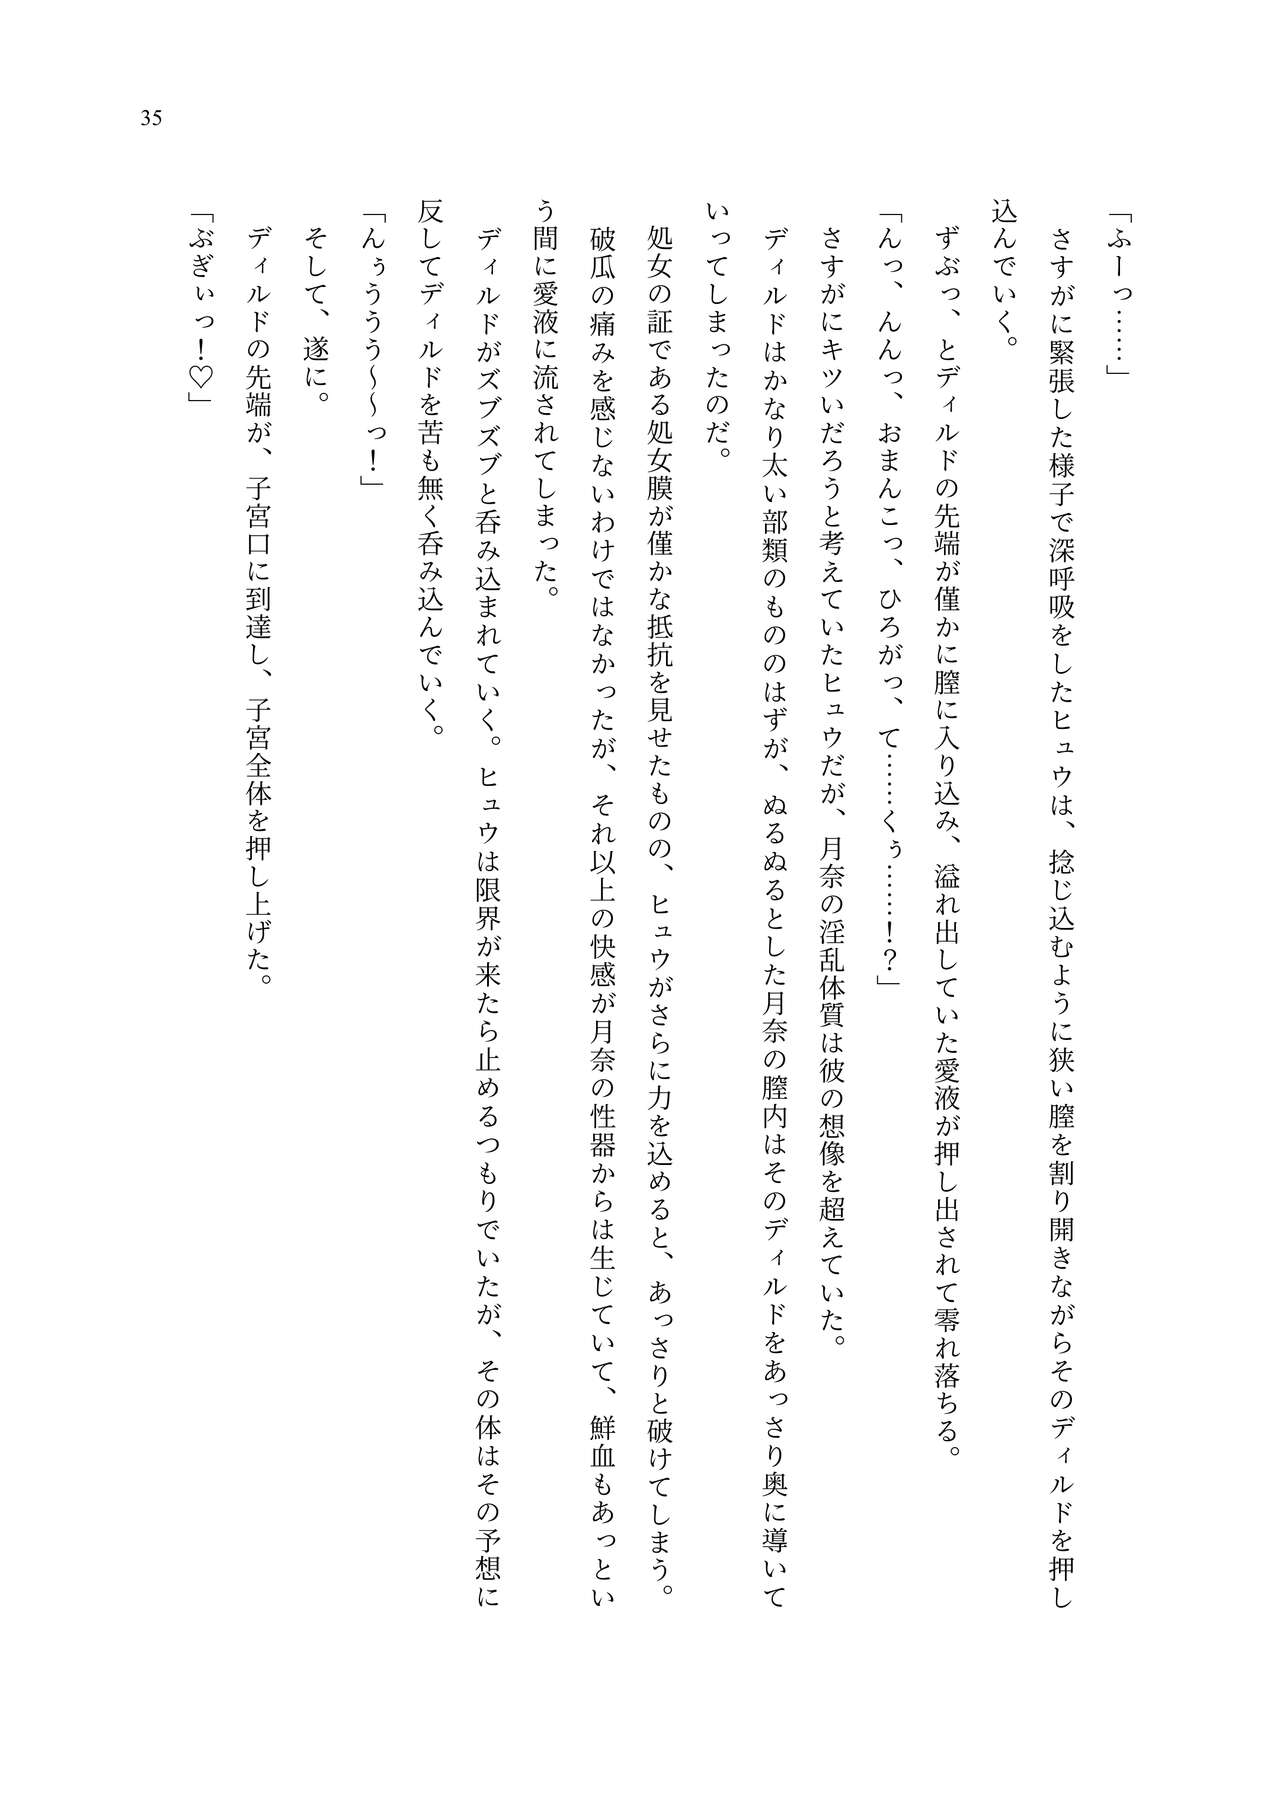 35
「ふーっ……」
　さすがに緊張した様子で深呼吸をしたヒュウは、捻じ込むように狭い膣を割り開きながらそのディルドを押し
込んでいく。
　ずぶっ、とディルドの先端が僅かに膣に入り込み、溢れ出していた愛液が押し出されて零れ落ちる。
「んっ、んんっ、おまんこっ、ひろがっ、て……くぅ……！？」
　さすがにキツいだろうと考えていたヒュウだが、月奈の淫乱体質は彼の想像を超えていた。
　ディルドはかなり太い部類のもののはずが、ぬるぬるとした月奈の膣内はそのディルドをあっさり奥に導いて
いってしまったのだ。
　処女の証である処女膜が僅かな抵抗を見せたものの、ヒュウがさらに力を込めると、あっさりと破けてしまう。
　破瓜の痛みを感じないわけではなかったが、それ以上の快感が月奈の性器からは生じていて、鮮血もあっとい
う間に愛液に流されてしまった。
　ディルドがズブズブと呑み込まれていく。ヒュウは限界が来たら止めるつもりでいたが、その体はその予想に
反してディルドを苦も無く呑み込んでいく。
「んぅううう～～っ！」
　そして、遂に。
　ディルドの先端が、子宮口に到達し、子宮全体を押し上げた。
「ぶぎぃっ！♡」